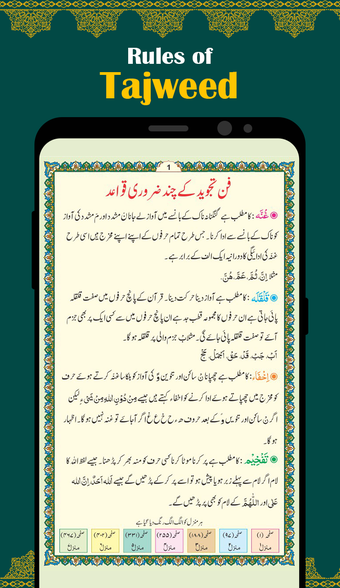 Rules of
Tajweed
1
فن تجوید کے چند ضروری قواعد
غُنَّه : کا مطلب ہے گنگنانا ناک کے بانسے میں آواز لے جانا ن مشدد اور م مشدد کی آواز
کو ناک کے بانسے سے ادا کرنا۔ جس طرح تمام حرفوں کے اپنے اپنے مخرج ہیں اسی طرح
غنہ کی ادائیگی کا دورانیہ ایک الف کے برابر ہے۔
مثلا اِنَّ، ثُمَّ، عَمَّ، ھُنَّ.
قَلْقَلَه : کا مطلب ہے آواز دینا حرکت دینا۔ قرآن کے پانچ حرفوں میں صفت قلقلہ
پائی جاتی ہے ان حرفوں کا مجموعہ قطب جد ہے ان پانچ حرفوں میں سے کسی ایک پر بھی جزم
آئے تو صفت قلقلہ پائی جائے گی۔ مثلا ب جزم والی پر قلقلہ ہو گا۔
اِخْفَآء : کا مطلب ہے چھپانا ن ساکن اور تنوین کی آواز کو ہلکا سا غنہ کرتے ہوئے حرف
کو مخرج میں چھپاتے ہوئے ادا کرنے کو اخفاء کہتے ہیں جیسے مِنْ دُوْنِ اللهِ لیکن
اگر ن ساکن اور تنوین کے بعد حروف ء ہ ح خ ع غ اگر آ جائے تو غنہ نہیں ہو گا۔ اظہار
ہو گا۔
تَفْخِيْم : کا مطلب ہے پر کرنا موٹا کرنا کسی حرف کو منہ بھر کر پڑھنا۔ جیسے لفظ اللہ کا
لام اگر لام سے پہلے زبر ہو یا پیش ہو تو اسے پر کر کے پڑھیں گے جیسے
اور اَللّٰهُمَّ کے لام کو بھی پر پڑھیں گے۔
ہر منزل کو الگ الگ رنگ دیا گیا ہے
منزل منزل منزل منزل منزل منزل منزل